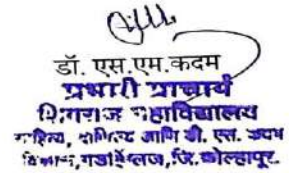 डॉ. एस.एम.कदम
प्रभारी प्राचार्य
शिवराज महाविद्यालय
वाणिज्य आणि डी. एस. कदम
विज्ञान, गडहिंग्लज, जि. कोल्हापूर.